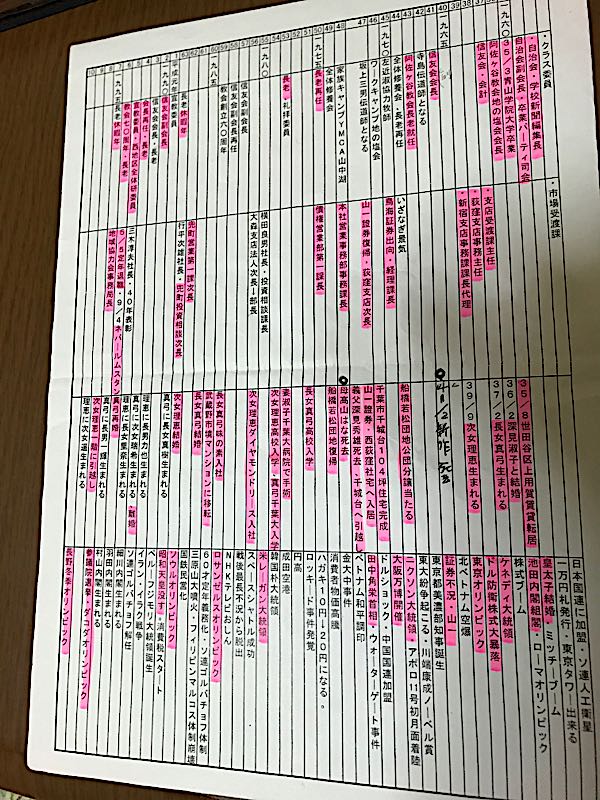 一九六〇
37
38
39
40
一九六五
41
42
43
44
45
一九七〇
46
47
48
49
50
一九七五
53
54
55
一九八〇
56
57
58
59
60
一九八五
61
62
63
平成元年
2
一九九〇
3
4
5
6
7
一九九五
8
9
10
・クラス委員
・自治会・学校新聞編集長
自治会副会長・卒業パーティ司会
35/3青山学院大学卒業
阿佐ヶ谷教会地の塩会会長
信友会・会計
信友会会長
寺島伝道師となる
阿佐ヶ谷教会長老就任
全体修養会・長老再任
左近淑協力牧師
ワークキャンプ地の塩会
坂上三男伝道師となる
家族キャンプYMCA山中湖
全体修養会
長老再任
長老・礼拝委員
教会創立60周年
信友会副会長再任
信友会副会長
長老休暇年
宣教委員
信友会副会長
信友会会長・長老
会長再任・長老
宣教委員・西地区全体研委員
教会70周年・長老
長老休暇年
・市場受渡課
・支店受渡課主任
・荻窪支店事務主任
・新宿支店事務課課長代理
いざなぎ景気
鳥海証券出向・経理課長
山一證券復帰・荻窪支店次長
本社営業事務部事務課長
債権営業部第一課長
横田良男社長・投資相談課長
大森支店法人次長Ⅰ部長
兜町営業第一課次長
行平次雄社長・兜町投資相談次長
三木淳夫社長・40年表彰
5/5定年退職・9/4ネパールムスタン
地域協力会事務局長
35/8世田谷区上用賀賃貸転居
36/2深見淑子と結婚
37/2長女真弓生まれる
39/9次女理恵生まれる
船橋若松団地公団分譲当たる
千葉市千城台104坪住宅完成
山一證券・西荻窪社宅へ入居
義父深見秀雄死去・千城台へ引越し
母高山はな死去
船橋若松団地復帰
長女真弓高校入学
妻淑子千葉大病院で手術
次女理恵高校入学・真弓千葉大入学
次女理恵ダイヤモンドリース入社
長女真弓味の素入社
武蔵野市境マンションに移転
長女真弓結婚
次女理恵結婚
真弓に長男真樹生まれる
理恵に長男力也生まれる
真弓に次女瑞希生まれる・離婚
理恵に長女里奈生まれる
真弓再婚
次女理恵一階に引越し
真弓に長男一輝生まれる
理恵に次女遥生まれる
日本国連に加盟・ソ連人工衛星
一万円札発行・東京タワー出来る
皇太子結婚・ミッチーブーム
池田内閣組閣・ローマオリンピック
株式ブーム
ケネディ大統領
ドル防衛株式大暴落
東京オリンピック
北ベトナム空爆
証券不況・山一
東京都美濃部知事誕生
東大紛争起こる・川端康成ノーベル賞
ニクソン大統領・アポロ11号初月面着陸
大阪万博開催
ドルショック・中国国連加盟
田中角栄首相・ウォーターゲート事件
ベトナム和平調印
金大中事件
消費者物価高騰
ハガキ10円→20円になる。
ロッキード事件発覚
円高
成田空港
韓国朴大統領
米レーガン大統領
スペースシャトル成功
戦後最長不況から脱出
NHKテレビおしん
ロサンゼルスオリンピック
60才定年義務化・ソ連ゴルバチョフ体制
三原山大噴火・フィリピンマルコス体制崩壊
国鉄民営
ソウルオリンピック
昭和天皇没す・消費税スタート
ペルーフジモリ大統領誕生
イラン・イラク戦争
ソ連ゴルバチョフ解任
細川内閣生まれる
羽田内閣生まれる
村山内閣生まれる
長野冬季オリンピック